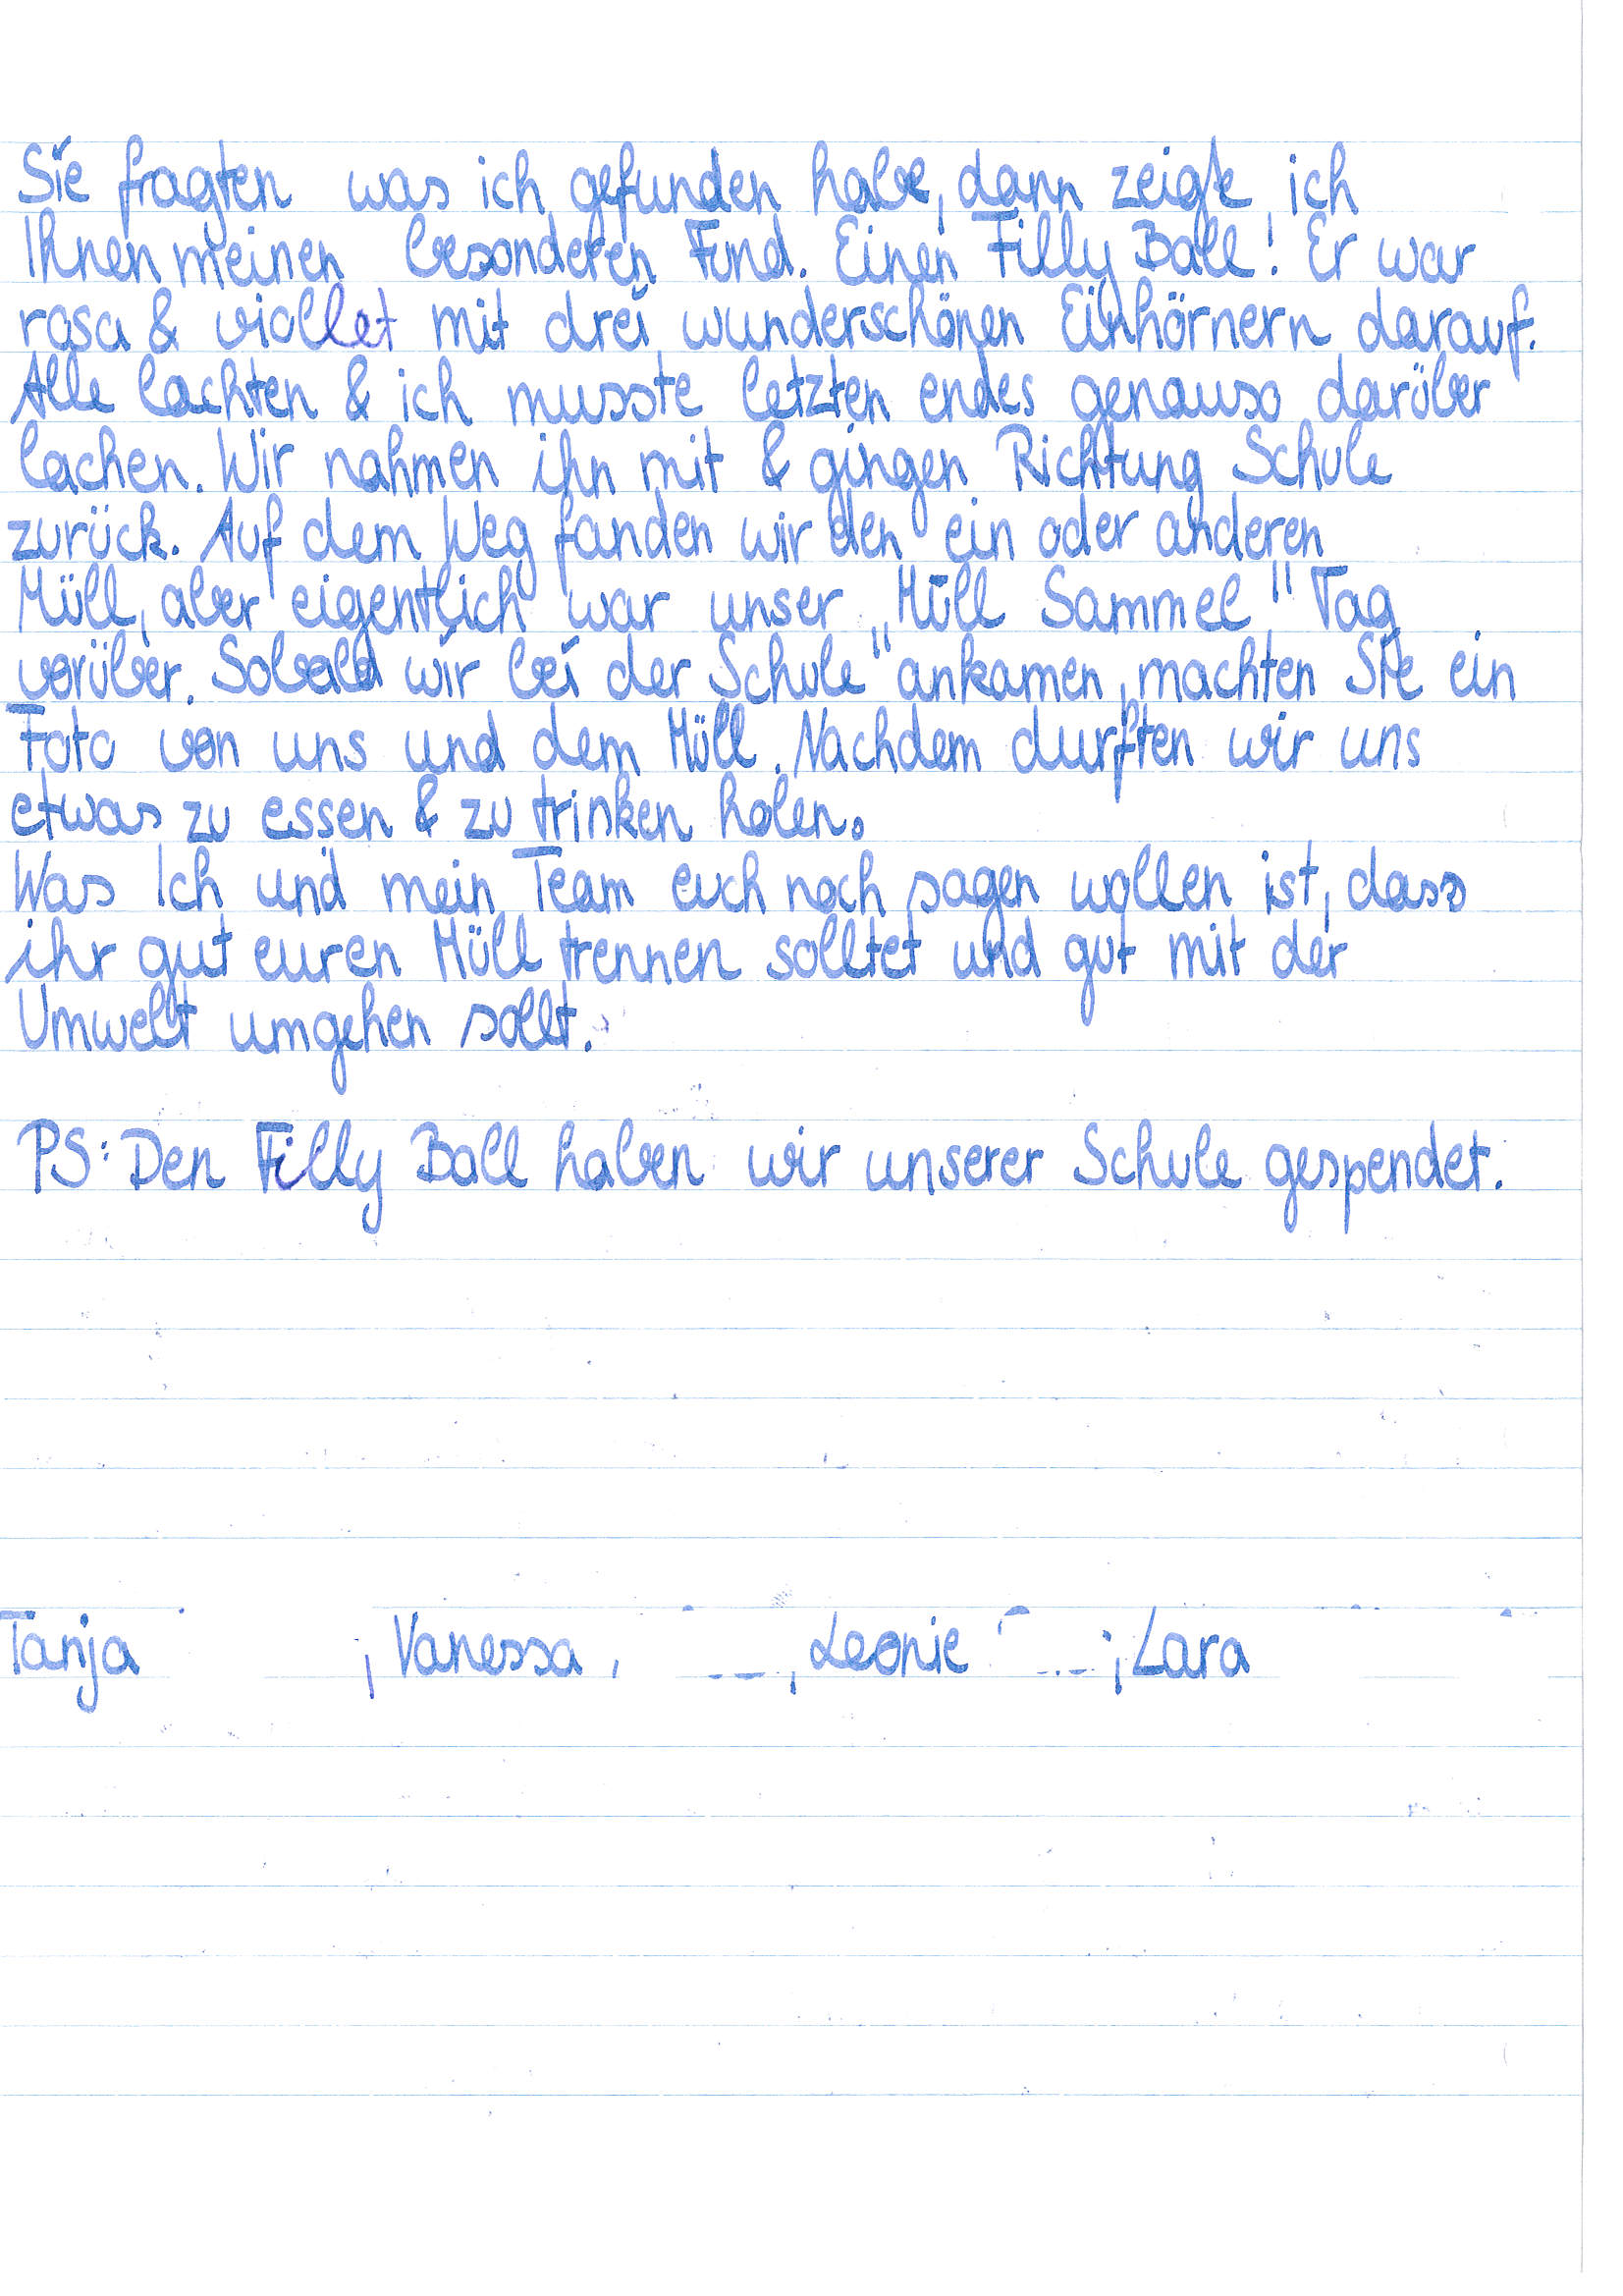 Sie fragten was ich gefunden habe, dann zeigte ich
Ihnen meinen besonderen Fund. Einen Filly Ball! Er war
rosa & viollet mit drei wunderschönen Einhörnern darauf.
Alle lachten & ich musste letzten endes genauso darüber
lachen. Wir nahmen ihn mit & gingen Richtung Schule
zurück. Auf dem Weg fanden wir den ein oder anderen
Müll, aber eigentlich war unser „Müll Sammel" Tag
vorüber. Sobald wir bei der Schule ankamen, machten Sie ein
Foto von uns und dem Müll. Nachdem durften wir uns
etwas zu essen & zu trinken holen.
Was Ich und mein Team euch noch sagen wollen ist, dass
ihr gut euren Müll trennen solltet und gut mit der
Umwelt umgehen sollt.
PS: Den Filly Ball haben wir unserer Schule gespendet.
Tanja , Vanessa , Leonie , Lara